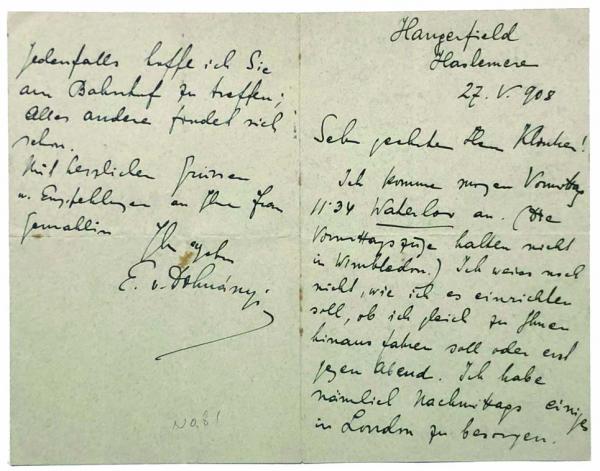 Hangerfield
Haslemere
27. V. 908
Sehr geehrter Herr
Ich komme morgen Vormittag
11·34 Waterloo an. (Die
Vormittagszüge halten nicht
in Wimbledon.) Ich weiss noch
nicht, wie ich es einrichten
soll, ob ich gleich zu Ihnen
hinaus fahren soll oder erst
gegen Abend. Ich habe
nämlich Nachmittags einiges
in London zu besorgen.
Jedenfalls hoffe ich Sie
am Bahnhof zu treffen;
Alles andere findet sich
schon.
Mit herzlichen Grüssen
u. Empfehlungen an Ihre Frau
Gemahlin
Ihr ergebn
E. v. Dohnányi